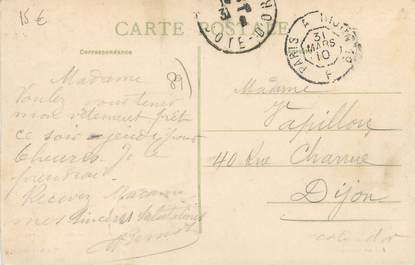 15 €
CARTE POSTALE
Correspondance
31
COTE-D'OR
PARIS A
31
MARS
10
F
89
Madame
Voulez vous tenir
mon vêtement prêt
ce soir jeudi pour
heures. Je le
prendrai
Recevez Madame
mes sincères salutations
Madame
Papillon
40 Rue Charrue
Dijon
cote d'or